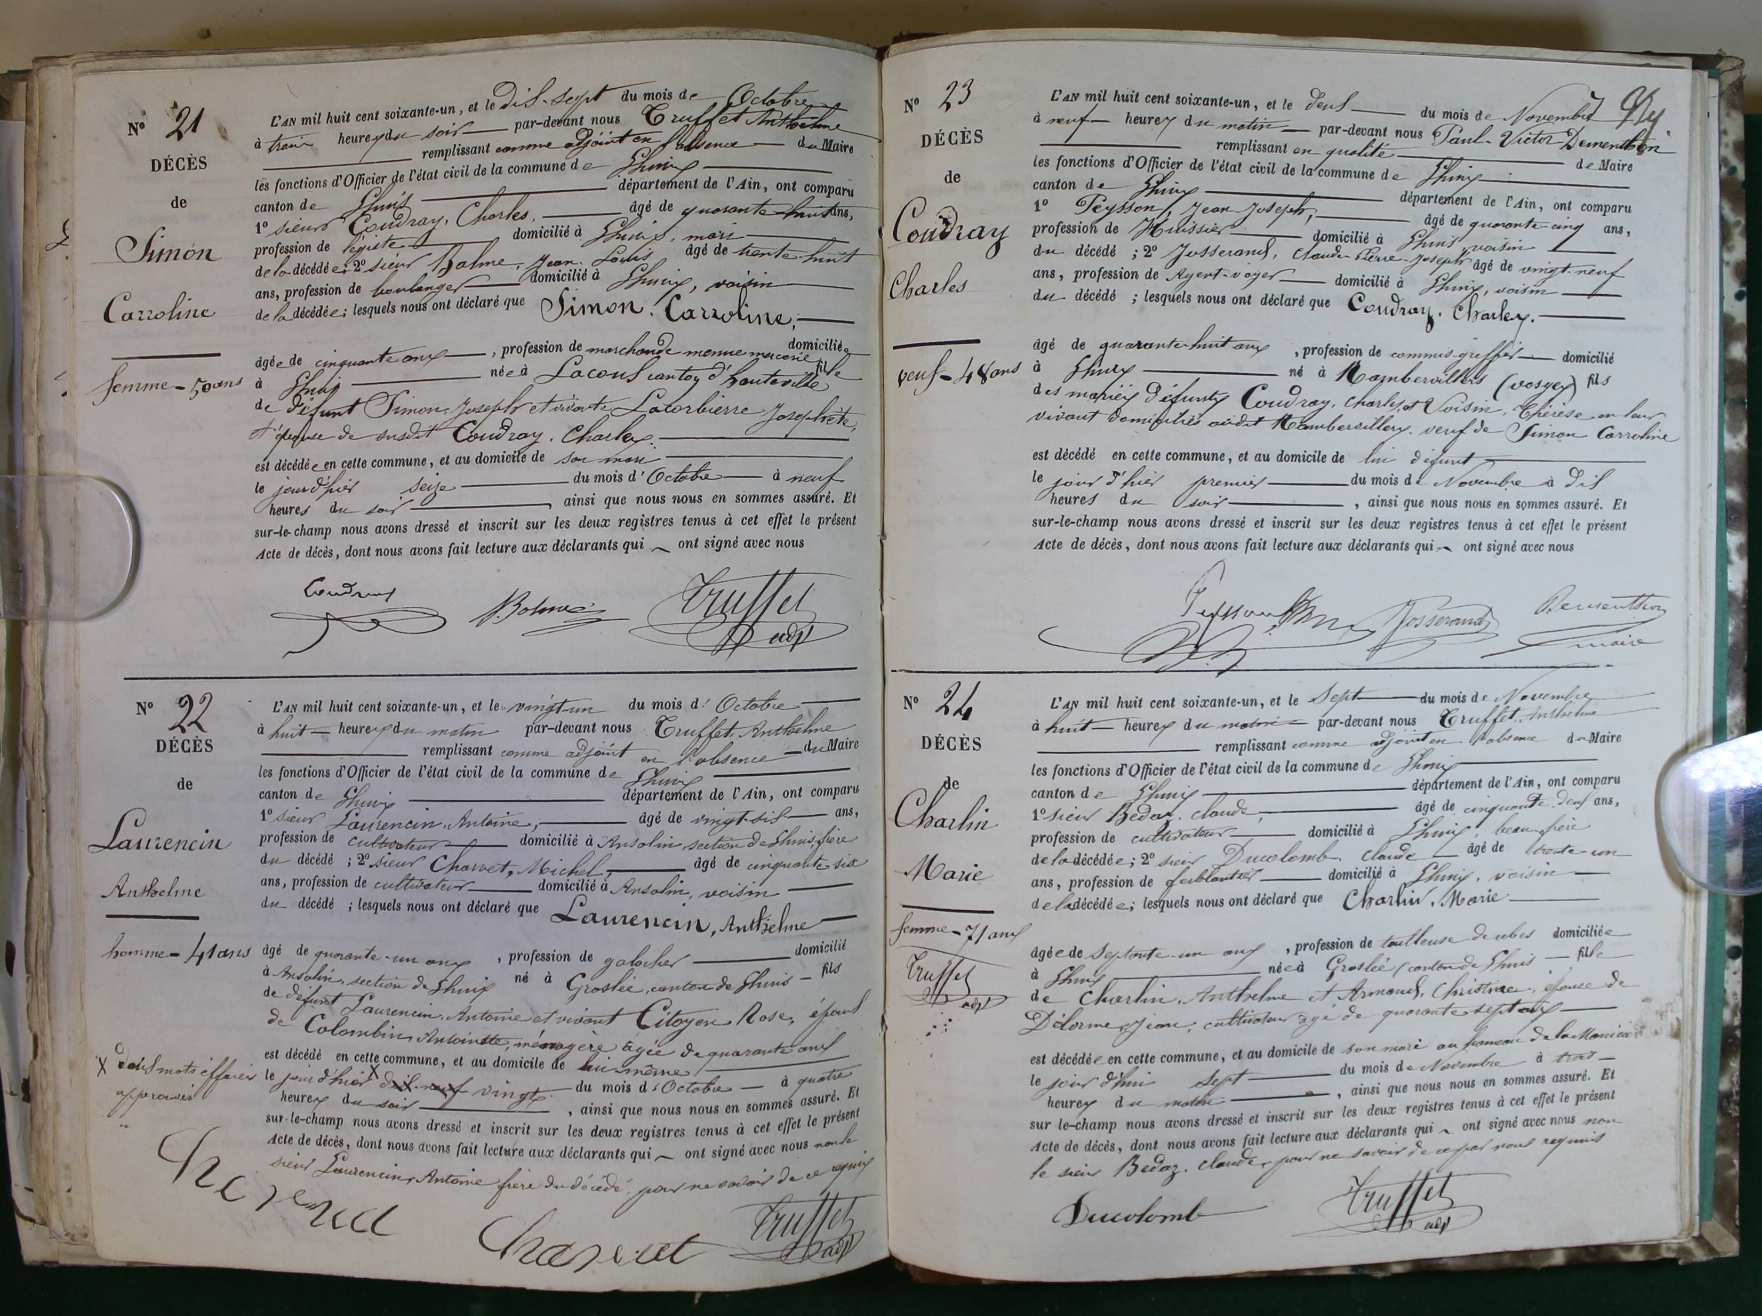 N° 21
DÉCÈS
de
Simon
Carroline
femme - 50 ans
L'AN mil huit cent soixante-un, et le Dix-sept du mois de Octobre
à trois heures du soir par-devant nous Truffet Anthelme
remplissant comme adjoint en l'absence du Maire
les fonctions d'Officier de l'état civil de la commune de Lhuis
canton de Lhuis département de l'Ain, ont comparu
1° sieur Coudray, Charles, âgé de quarante-huit ans,
profession de domicilié à Lhuis, mari
de la décédée; 2° sieur Balme, Jean Louis âgé de trente huit
ans, profession de boulanger domicilié à Lhuis, voisin
de la décédée; lesquels nous ont déclaré que Simon, Carroline,
âgée de cinquante ans, profession de marchande menue mercerie domiciliée
à Lhuis née à Lacoux canton d'hauteville fille
de défunt Simon, Joseph et vivante Latorbierre Josephete,
épouse de susdit Coudray, Charles.
est décédée en cette commune, et au domicile de son mari
le jour d'hier seize du mois d'Octobre à neuf
heures du soir, ainsi que nous nous en sommes assuré. Et
sur-le-champ nous avons dressé et inscrit sur les deux registres tenus à cet effet le présent
Acte de décès, dont nous avons fait lecture aux déclarants qui ont signé avec nous
Coudray Balme Truffet adjt
N° 22
DÉCÈS
de
Laurencin
Anthelme
homme - 41 ans
L'AN mil huit cent soixante-un, et le vingt-un du mois d'Octobre
à huit heures du matin par-devant nous Truffet, Anthelme
remplissant comme adjoint en l'absence du Maire
les fonctions d'Officier de l'état civil de la commune de Lhuis
canton de Lhuis département de l'Ain, ont comparu
1° sieur Laurencin, Antoine, âgé de vingt-six ans,
profession de cultivateur domicilié à Ansolin section de Lhuis, frère
du décédé; 2° sieur Charvet, Michel, âgé de cinquante six
ans, profession de cultivateur domicilié à Ansolin, voisin
du décédé; lesquels nous ont déclaré que Laurencin, Anthelme
âgé de quarante-un ans, profession de galocher domicilié
à Ansolin, section de Lhuis né à Groslée, canton de Lhuis fils
de défunt Laurencin, Antoine et vivant Citoyen Rose, époux
de Colombin, Antoinette, ménagère âgée de quarante ans
est décédé en cette commune, et au domicile de lui-même
le jour d'hier dix-neuf vingt du mois d'Octobre à quatre
heures du soir, ainsi que nous nous en sommes assuré. Et
X deux mots effacés
approuvés
sur-le-champ nous avons dressé et inscrit sur les deux registres tenus à cet effet le présent
Acte de décès, dont nous avons fait lecture aux déclarants qui ont signé avec nous non le
sieur Laurencin, Antoine frère du décédé, pour ne savoir de ce requis
Charvet Truffet adjt
N° 23
DÉCÈS
de
Coudray
Charles
veuf - 48 ans
L'AN mil huit cent soixante-un, et le deux du mois de Novembre
à neuf heures du matin par-devant nous Paul-Victor Dementhon
remplissant en qualité de Maire
les fonctions d'Officier de l'état civil de la commune de Lhuis
canton de Lhuis département de l'Ain, ont comparu
1° Peysson, Jean Joseph, âgé de quarante cinq ans,
profession de Huissier domicilié à Lhuis voisin
du décédé; 2° Josserand, Claude-Pierre-Joseph âgé de vingt-neuf
ans, profession de Agent-voyer domicilié à Lhuis, voisin
du décédé; lesquels nous ont déclaré que Coudray, Charles.
âgé de quarante huit ans, profession de commis greffier domicilié
à Lhuis né à Rambervillers (vosges) fils
des mariés défunts Coudray, Charles et Voisin, Thérèse en leur
vivant domiciliés audit Rambervillers, veuf de Simon Carroline
est décédé en cette commune, et au domicile de lui défunt
le jour d'hier premier du mois de Novembre à dix
heures du soir, ainsi que nous nous en sommes assuré. Et
sur-le-champ nous avons dressé et inscrit sur les deux registres tenus à cet effet le présent
Acte de décès, dont nous avons fait lecture aux déclarants qui ont signé avec nous
Peysson Josserand Dementhon
maire
N° 24
DÉCÈS
de
Charlin
Marie
femme - 71 ans
Truffet
adjt
L'AN mil huit cent soixante-un, et le sept du mois de Novembre
à huit heures du matin par-devant nous Truffet, Anthelme
remplissant comme adjoint en l'absence du Maire
les fonctions d'Officier de l'état civil de la commune de Lhuis
canton de Lhuis département de l'Ain, ont comparu
1° sieur Bedaz, Claude, âgé de cinquante-deux ans,
profession de cultivateur domicilié à Lhuis, beau-frère
de la décédée; 2° sieur Ducolomb, Claude âgé de trente un
ans, profession de ferblantier domicilié à Lhuis, voisin
de la décédée; lesquels nous ont déclaré que Charlin, Marie
âgée de septante-un ans, profession de domiciliée
à Lhuis née à Groslée, canton de Lhuis fille
de Charlin, Anthelme et Armand, Christine, épouse de
Délorme, Jean, cultivateur âgé de quarante sept ans
est décédée en cette commune, et au domicile de son mari au hameau de
le jour d'hui sept du mois de Novembre à trois
heures du matin, ainsi que nous nous en sommes assuré. Et
sur-le-champ nous avons dressé et inscrit sur les deux registres tenus à cet effet le présent
Acte de décès, dont nous avons fait lecture aux déclarants qui ont signé avec nous non
le sieur Bedaz, Claude, pour ne savoir de ce par nous requis
Ducolomb Truffet adjt